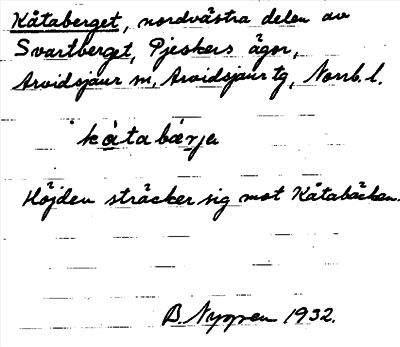 Kåtaberget, nordvästra delen av
Svartberget, Pjeskers ägor,
Arvidsjaur sn, Arvidsjaur tg, Norrb. l.
kå̀tabærje
Höjden sträcker sig mot Kåtabäcken.
B. Nygren 1932.